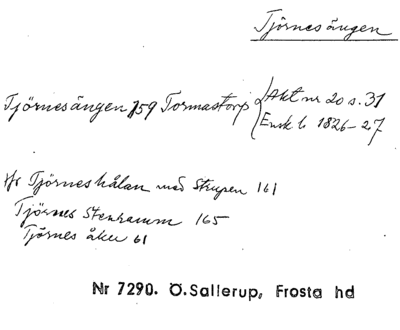 Tjörnesängen
Tjörnesängen 159 Tormastorp { Akt nr 20 s. 31
Ensk l. 1826-27
Jfr Tjörneshålan med Strupen 161
Tjörnes Stenhamm 165
Tjörnes åker 61
Nr 7290. Ö.Sallerup, Frosta hd